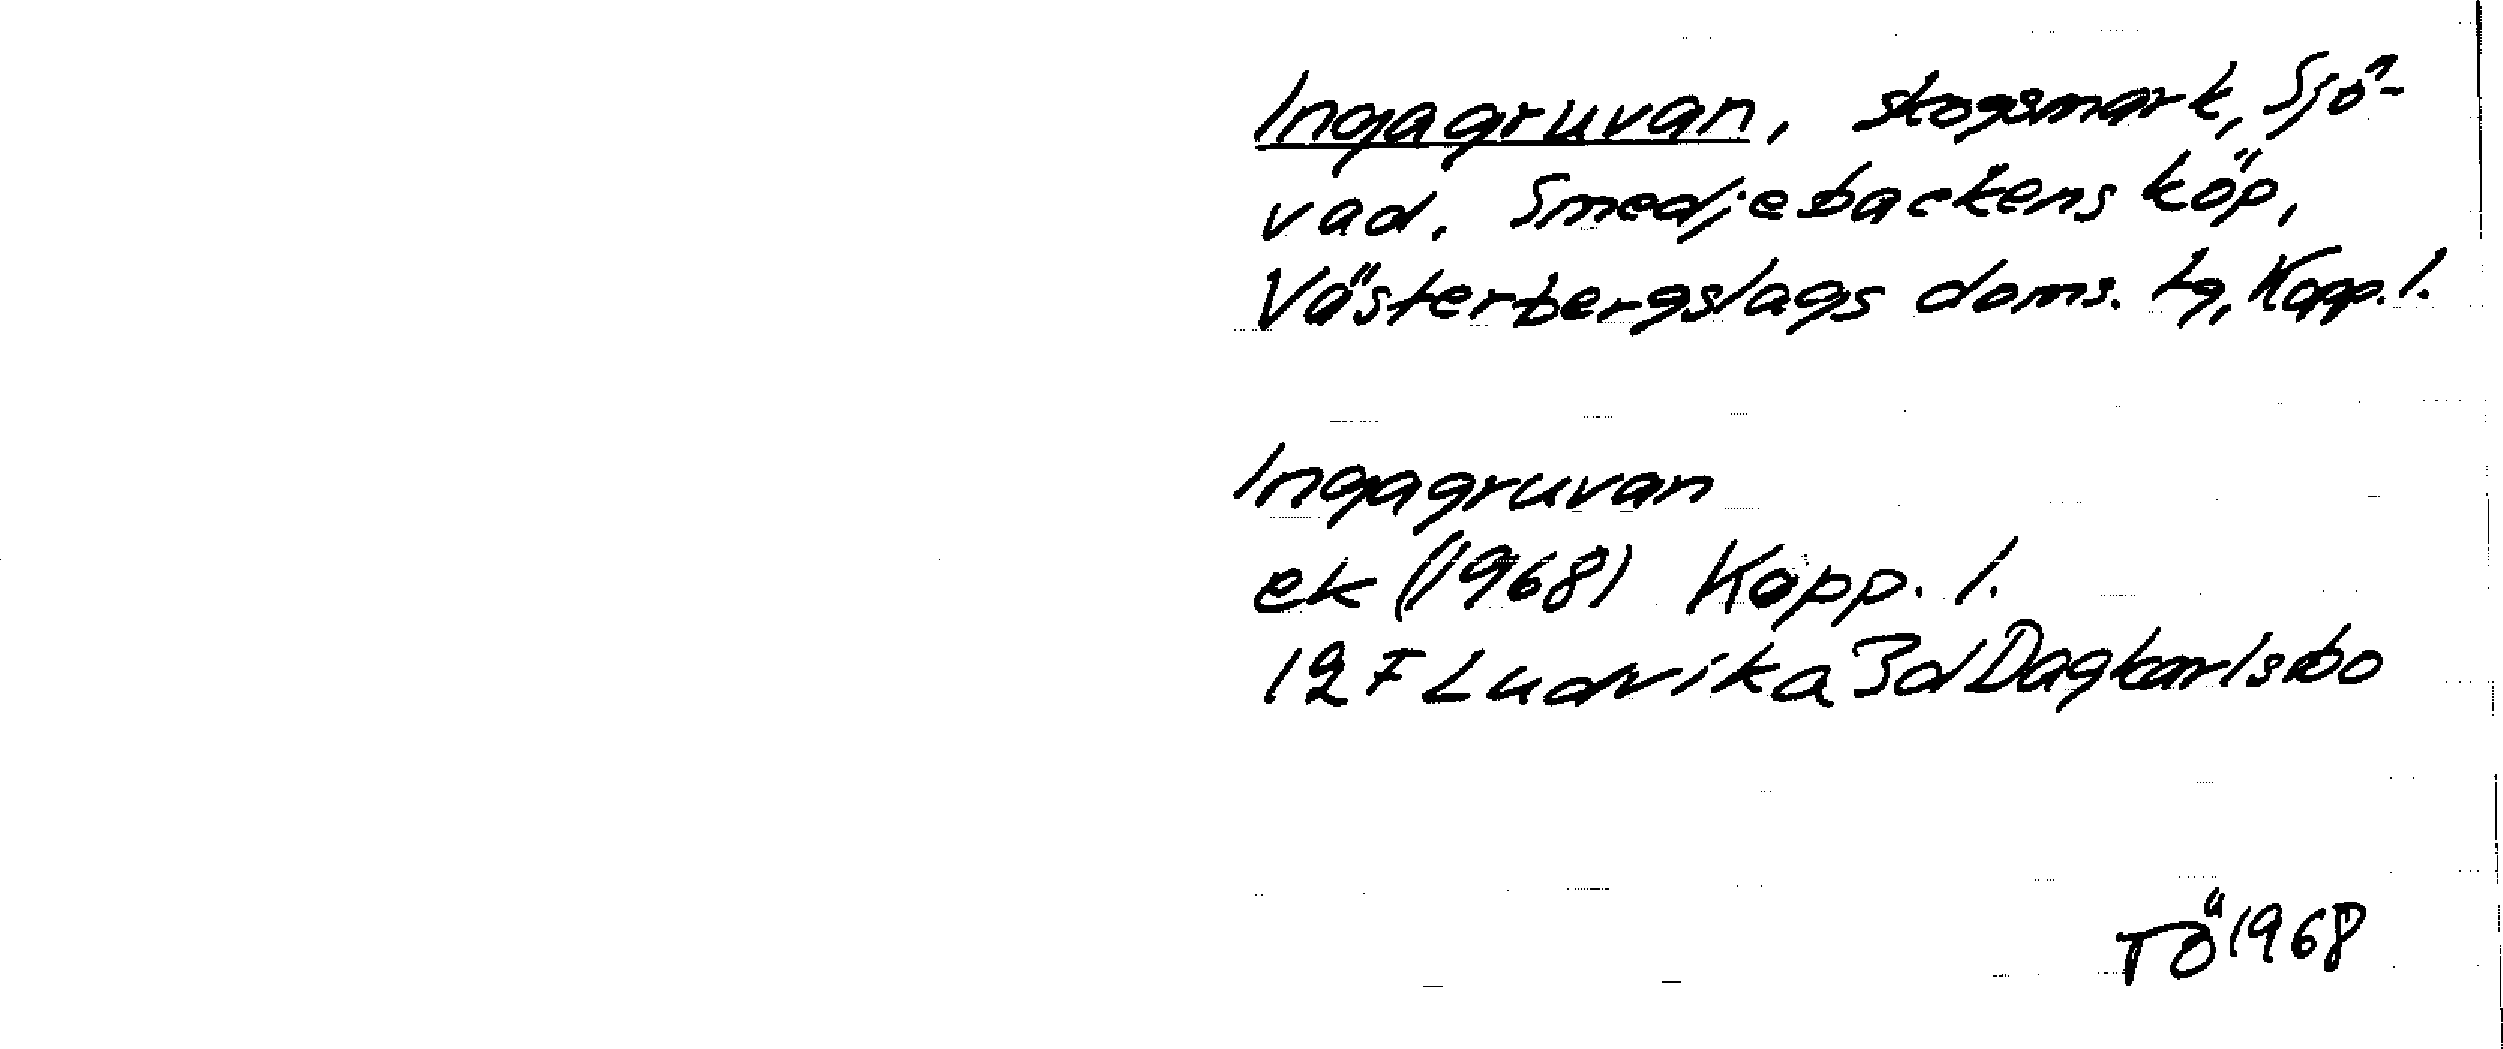 Ingagruvan, skogsmark, Sjö-
vad. Smedjebackens köp,
Västerbergslags doms. tg, Kopp. l.
Ingagruvan
ek (1968) Kopp. l.
12 F Ludvika 3d Dagkarlsbo
TÖ 1968